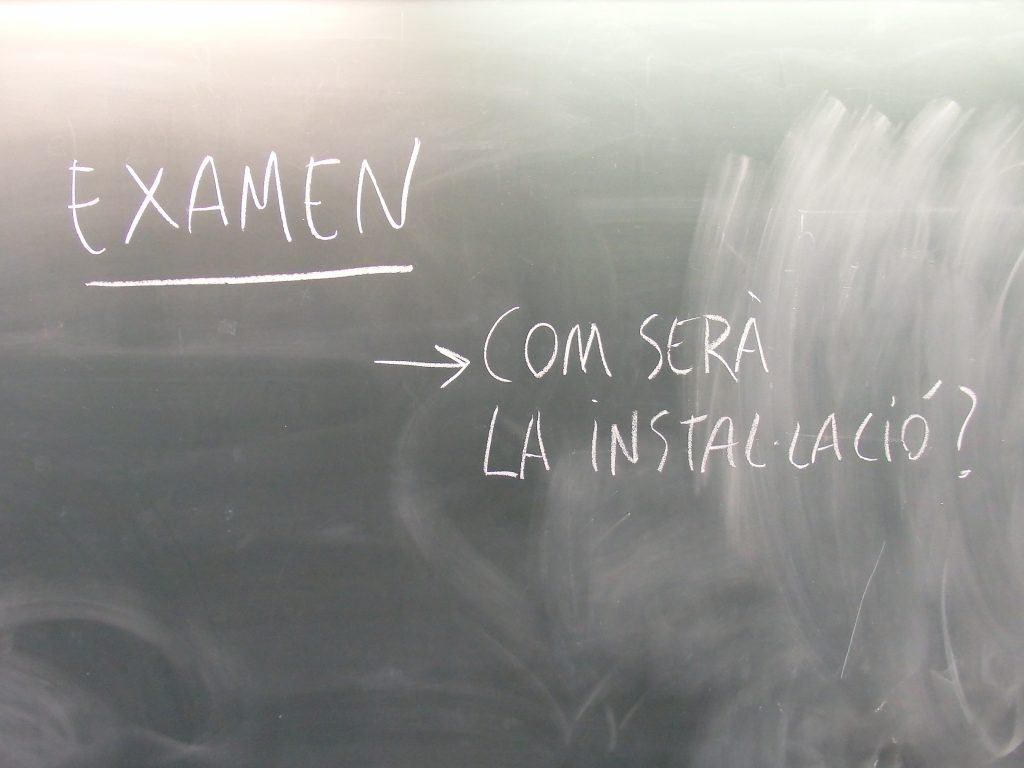 EXAMEN
→ COM SERÀ
LA INSTAL·LACIÓ?